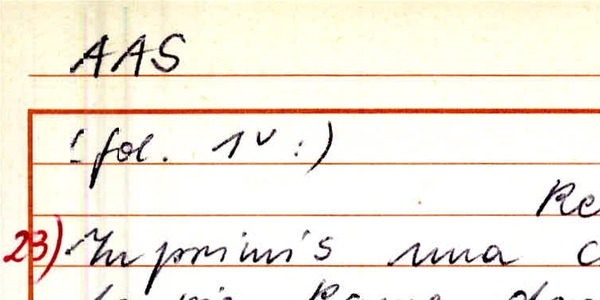 AAS
(: fol. 1v :)
Re
23) In primis una c